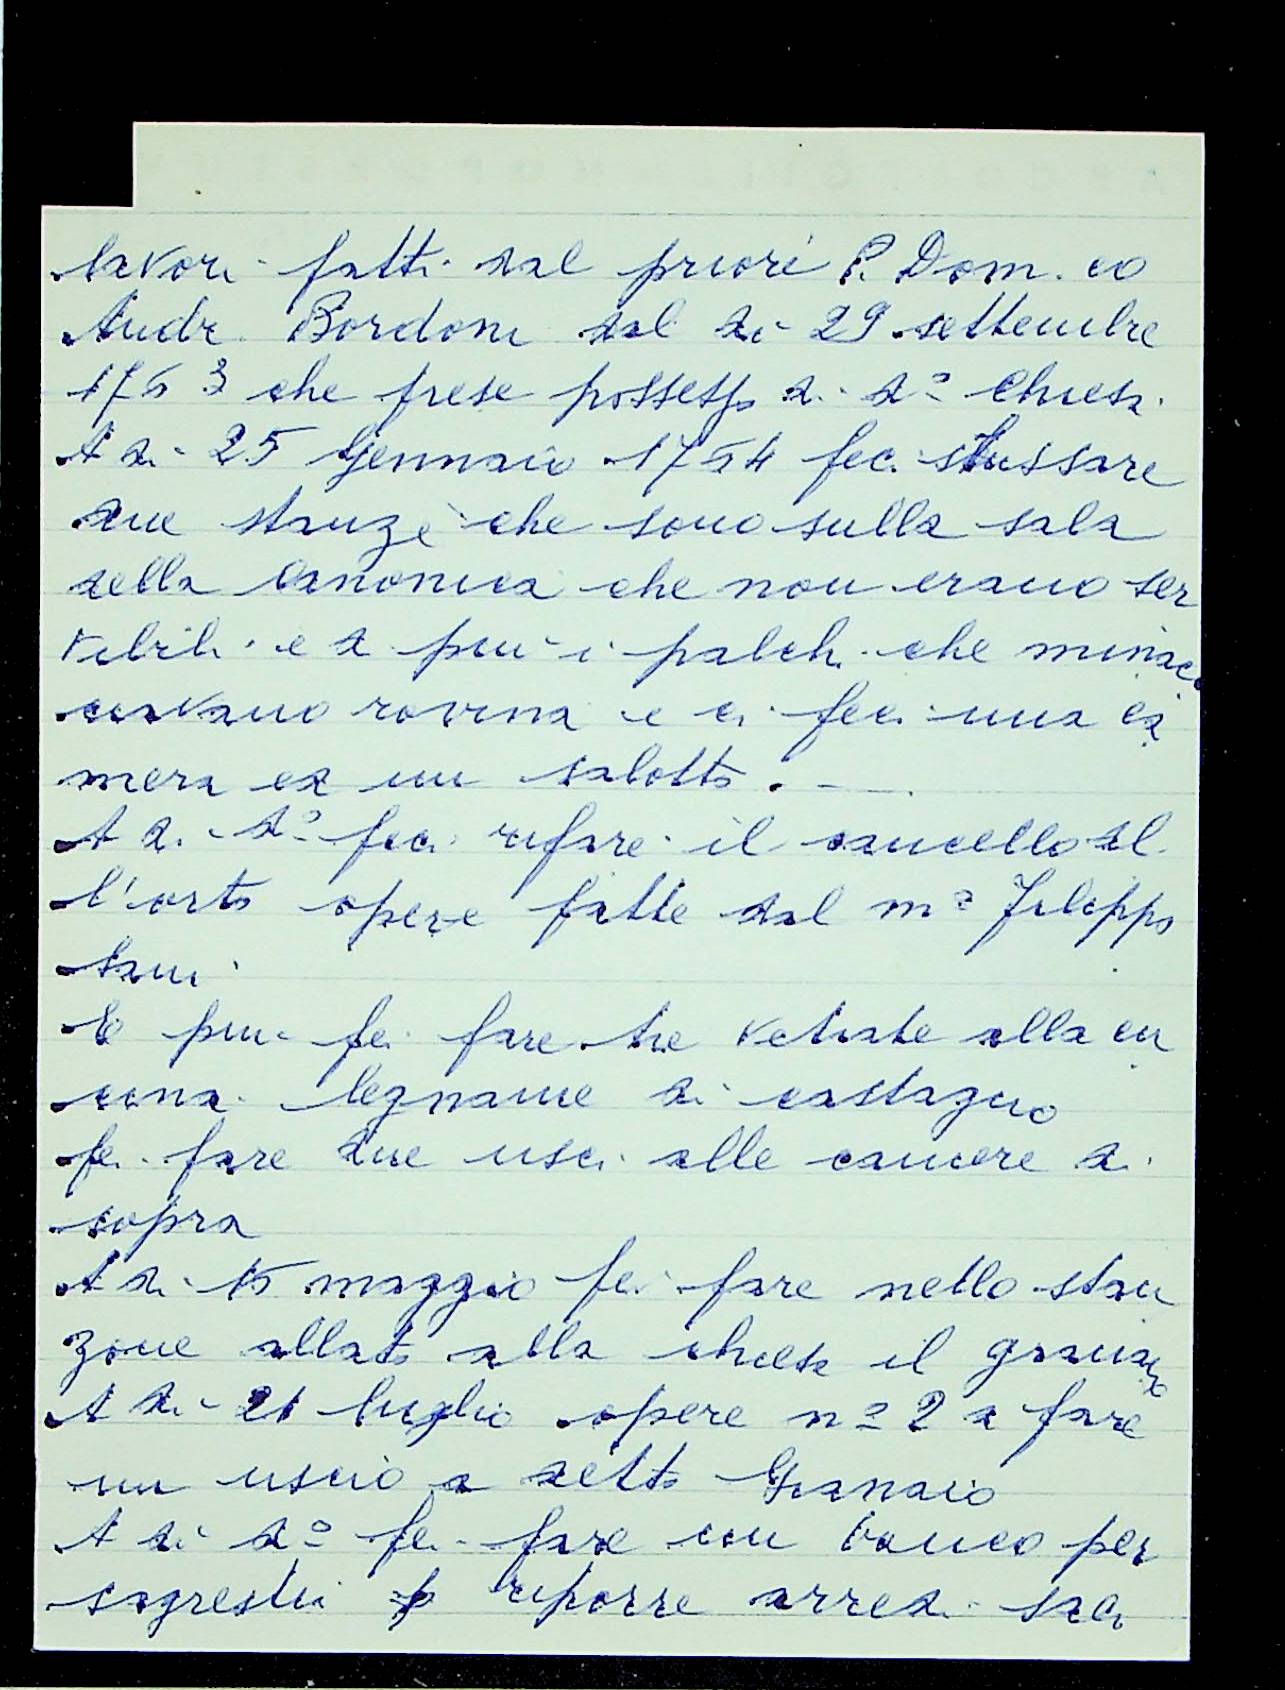 lavori fatti dal priori P. Dom. co
Andr. Bordoni dal di 29 settembre
1753 che prese possesso di dº Chiesa.
A di 25 Gennaio 1754 feci stussare
due stanze che sono sulla sala
della Canonica che non erano ser
vibili e di più i palchi che minac
ciavano rovina e ci feci una ca
mera ed un salotto. —
A di dº feci rifare il cancello al
l'orto opere fatte dal mº Filippo
Sani
E più fei fare tre vetrate alla cu
cina legname di castagno
fei fare due usci alle camere di
sopra
A di 15 maggio fei fare nello stan
zone allato alla chiesa il granaio
A di 21 luglio opere nº 2 a fare
un uscio a detto Granaio
A di dº fei fare un banco per
sagrestia p riporre arredi sacri